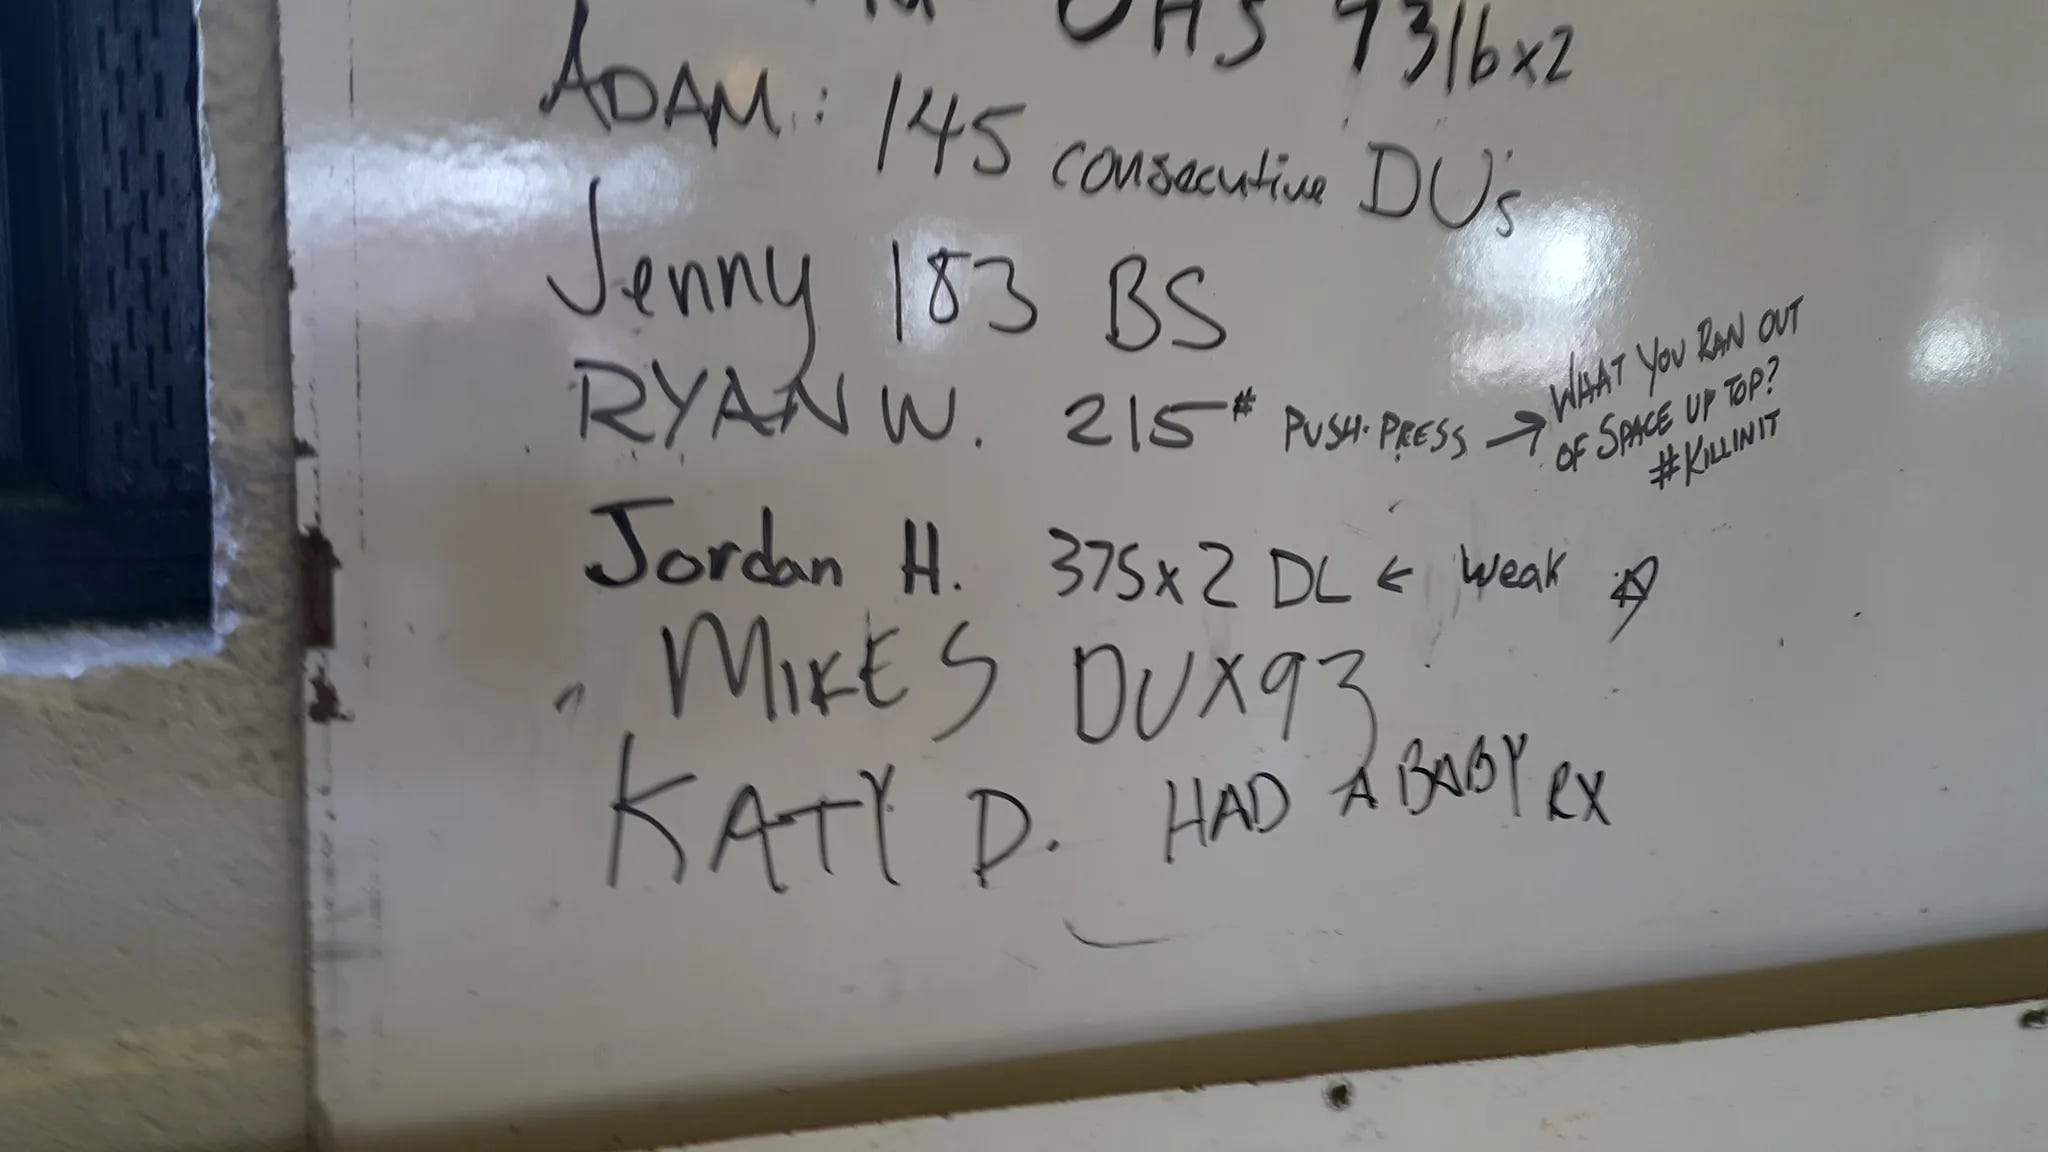 OHS 93lbx2
ADAM: 145 consecutive DU's
Jenny 183 BS
RYAN W. 215# PUSH-PRESS → WHAT YOU RAN OUT
OF SPACE UP TOP?
#KILLINIT
Jordan H. 375x2 DL ← Weak ☆
MIKE S DUX93
KATY D. HAD A BABY RX